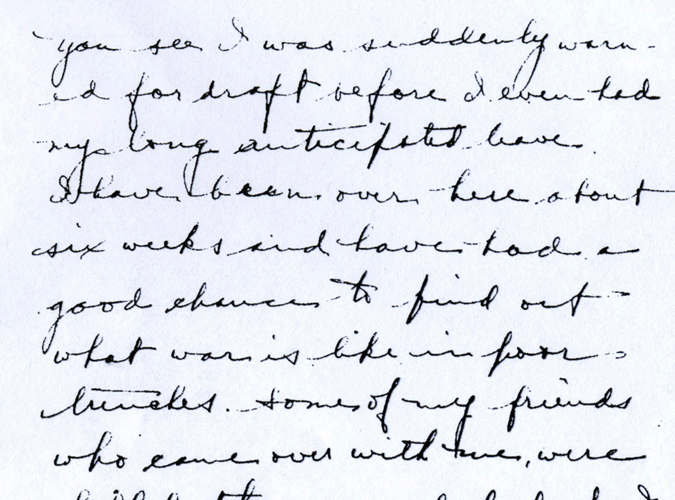 you see I was suddenly warn-
ed for draft before I even had
my long anticipated leave.
I have been over here about
six weeks and have had a
good chance to find out
what war is like in poor
trenches. Some of my friends
who came over with me, were